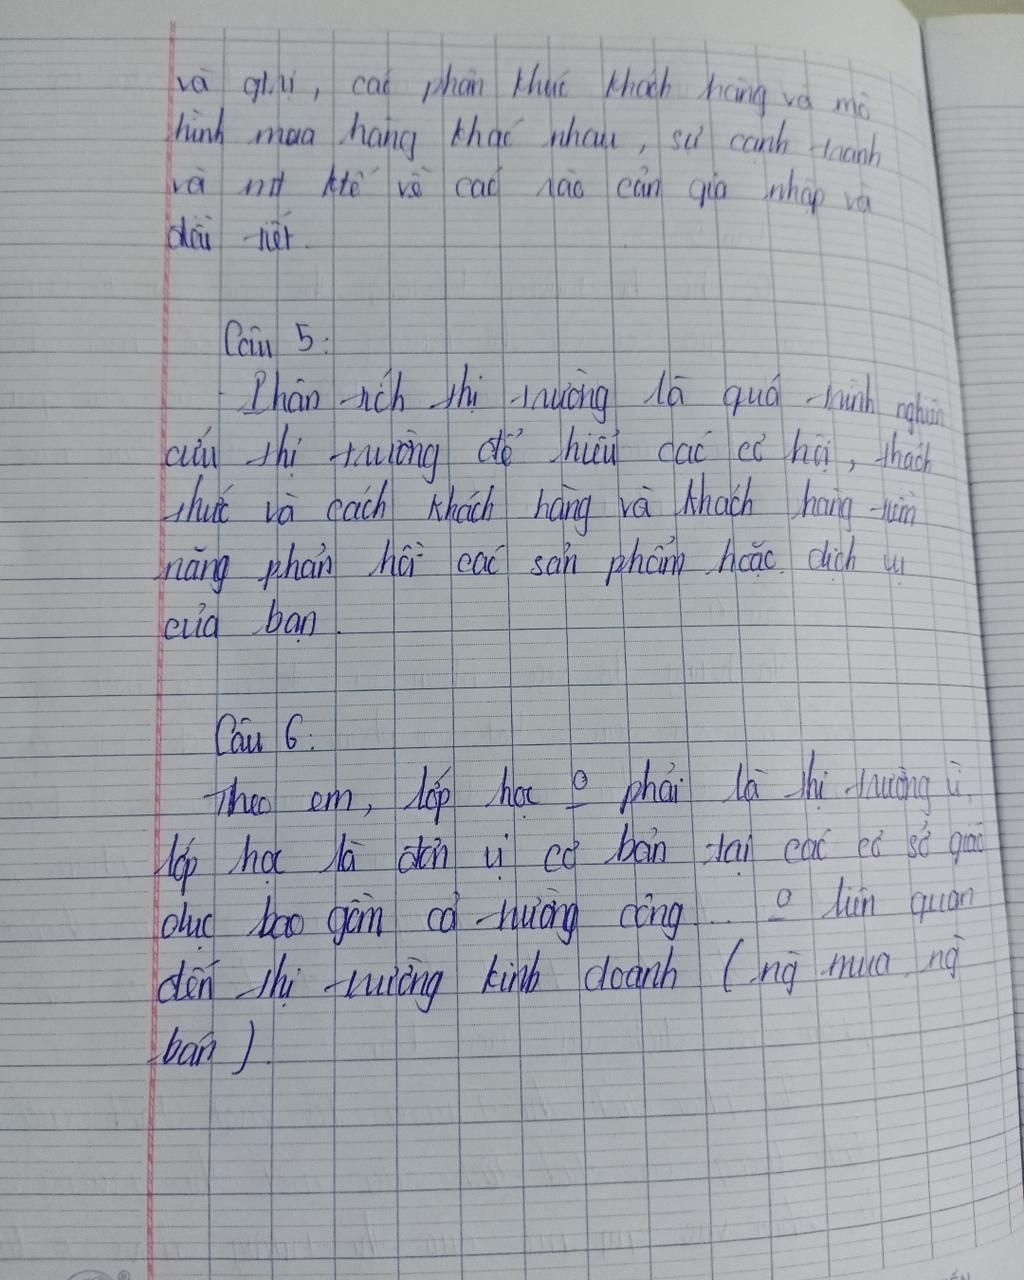 và giá trị, các phân khúc khách hàng và mô
hình mua hàng khác nhau, sự cạnh tranh
và nề ktế về các rào cản gia nhập và
điều tiết.
Câu 5:
- Phân tích thị trường là quá trình nghiên
cứu thị trường để hiểu các cơ hội, thách
thức và cách khách hàng và khách hàng tiềm
năng phản hồi các sản phẩm hoặc dịch vụ
của bạn.
Câu 6:
Theo em, lớp học o phải là thị trường vì,
lớp học là đơn vị cơ bản tại các cơ sở giáo
dục bao gồm cả trường công... o liên quan
đến thị trường kinh doanh (ng mua ng
bán).